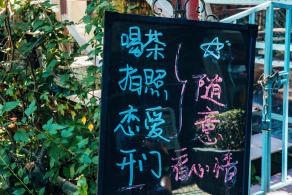 喝茶
拍照
恋爱
开门
随意
看心情